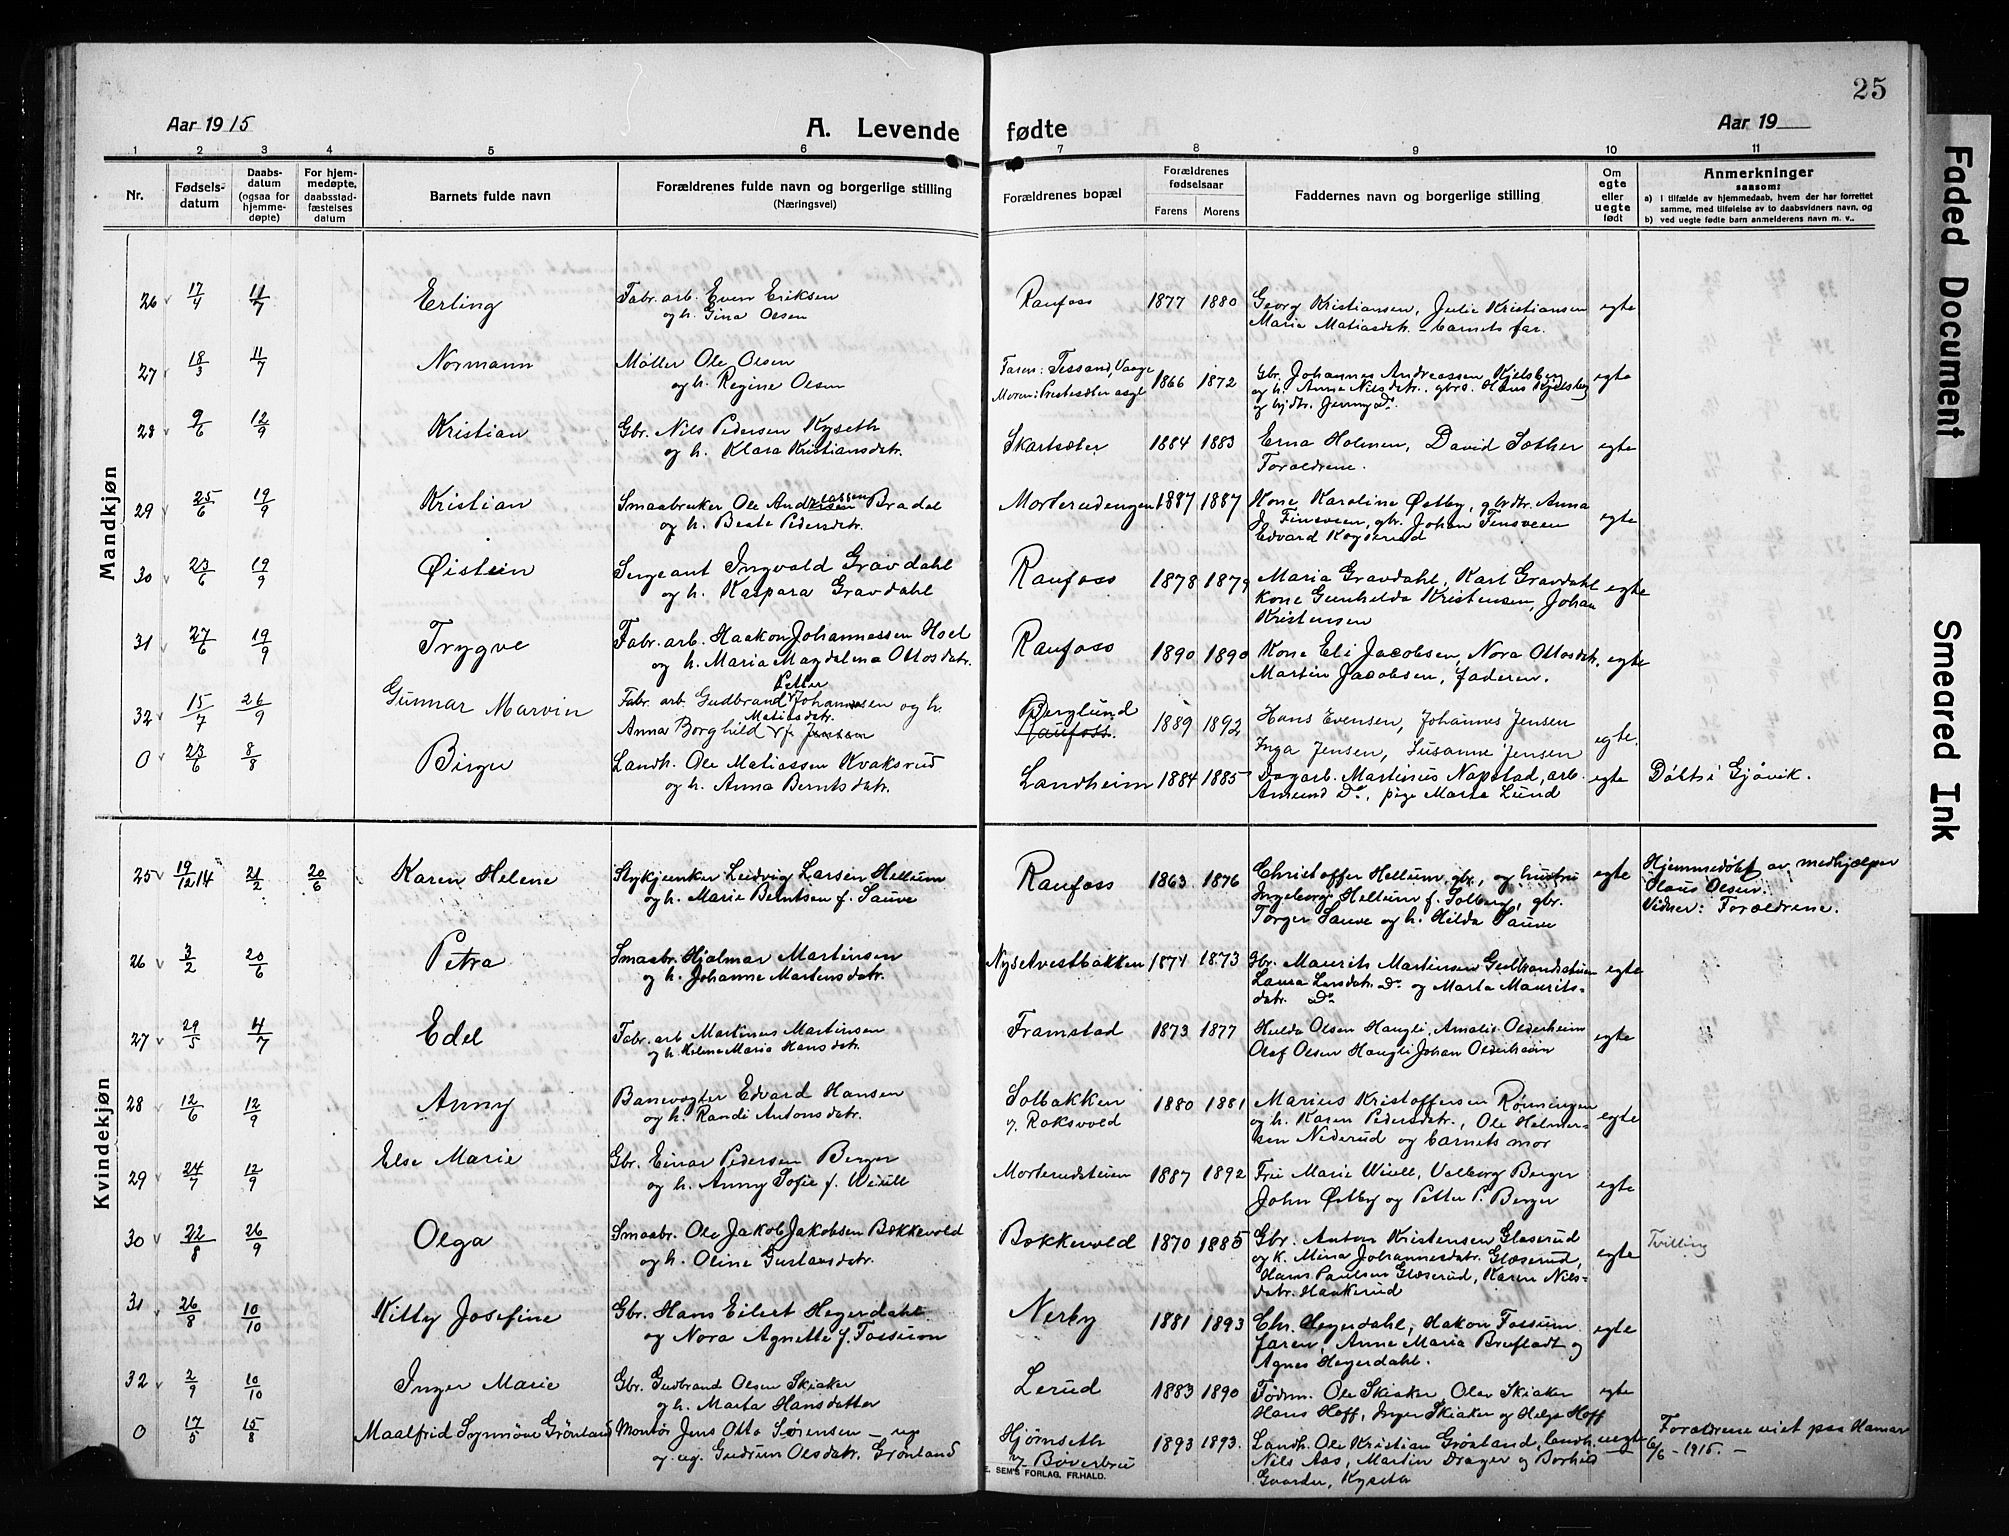 25
Aar 1915
A. Levende fødte
Aar 19
1 2 3 4 5 6 7 8 9 10 11
Nr.
Fødsels-
datum
Daabs-
datum
(ogsaa for
hjemme-
døpte)
For hjem-
medøpte,
daabsstad-
fæstelses
datum
Barnets fulde navn
Forældrenes fulde navn og borgerlige stilling
(Næringsvei)
Forældrenes bopæl
Forældrenes
fødselsaar
Farens Morens
Faddernes navn og borgerlige stilling
Om
egte
eller
uegte
født
Anmerkninger
saasom:
a) i tilfælde av hjemmedaab, hvem der har forrettet
samme, med tilføielse av to daabsvidners navn, og
b) ved uegte fødte barn anmelderens navn m. v..
Mandkjøn
26 17/4 11/7 Erling Fabr. arb. Even Eriksen Raufoss 1877 1880 Georg Kristiansen, Julie Kristiansen egte
og h. Gina Olsen Maria Matiasdtr. – barnets far.
27 18/3 11/7 Normann Møller Ole Olsen Faren: Tessand, Vaage 1866 1872 Gbr. Johannes Andreassen Kjelsberg egte
og h. Regine Olsen Moren: Prestesæter asyl og h. Anna Nilsdtr. gbrs. Hans Kjelsberg
og hjdtr. Jenny Do.
28 9/6 12/9 Kristian Gbr. Nils Pedersen Kyseth Skartsæter 1884 1883 Erna Holmen, David Sæther egte
og h. Klara Kristiansdtr. Forældrene.
29 25/6 19/9 Kristian Smaabruker Ole Andreassen Bradal Morterudengen 1887 1887 Kone Karoline Østby, gbrdtr. Anna egte
og h. Beate Pedersdtr. J. Finsveen, gbr. Johan Finsveen
Edvard Køyserud
30 23/6 19/9 Øistein Sergeant Ingvald Gravdahl Raufoss 1878 1879 Maria Gravdahl, Karl Gravdahl egte
og h. Kaspara Gravdahl kone Gunhilda Kristensen, Johan
Kristensen
31 27/6 19/9 Trygve Fabr. arb. Haakon Johannessen Hoel Raufoss 1890 1890 Kone Eli Jacobsen, Nora Ottosdtr. egte
og h. Maria Magdalena Ottosdtr. Martin Jacobsen, faderen.
32 15/7 26/9 Gunnar Marvin Fabr. arb. Gudbrand Petter Johannesen og h. Berglund 1889 1892 Hans Evensen, Johannes Jensen egte.
Anna Borghild Matiasdtr. f. Jensen Raufoss. Inga Jensen, Susanne Jensen
0 23/6 8/8 Birger Landh. Ole Matiassen Kvaksrud Landheim 1884 1885 Dagarb. Martinus Napstad, arb. egte Døbt i Gjøvik.
og h. Anna Berntsdatr. Amund Do., pige Marta Lund
Kvindekjøn
25 19/12 14 21/2 20/6 Karen Helene Stykjunker Ludvig Larsen Hellum Raufoss 1863 1876 Christoffer Hellum gbr., og hustru egte Hjemmedøbt av medhjælper
og h. Marie Berntsen f. Sauve Ingeborg Hellum f. Solberg, gbr. Olaus Olsen.
Torger Sauve og h. Hilda Sauve Vidner: Forældrene.
26 3/2 20/6 Petra Smaabr. Hjalmar Martinsen Nysetvestbakken 1874 1873 Gbr. Maurits Martinsen egte
og h. Johanne Martensdatr. Laura Larsdatr. Do og Marta Maurits-
datr. Do
27 29/5 4/7 Edel Fabr. arb Martinus Martinsen Framstad 1873 1877 Hulda Olsen Haugli, Amalie Olderheim egte
og h. Helene Maria Hansdtr. Olaf Olsen Haugli Johan Olderheim
28 12/6 12/9 Anny Banevogter Edvard Hansen Solbakken 1880 1881 Marius Kristoffersen Rønningen egte
og h. Randi Antonsdatr. v. Roksvold og h. Karen Pedersdatr., Ole Helmer-
sen Nederud og barnets mor
29 24/7 12/9 Else Marie Gbr. Einar Pedersen Berger Morterudsteien 1887 1892 Frú Marie Wiull, Valborg Berger egte
og h. Anny Sofie f. Wiull John Østby og Petter P. Berger
30 22/8 26/9 Olga Smaabr. Ole Jakob Jakobsen Bakkevold Bakkevold 1870 1885 Gbr. Anton Kristensen Glæserud egte Tvilling
og h. Oline Gustavsdatr. og k. Mina Johannesdatr. Glæserud,
Hans Paulsen Glæserud, Karen Nils-
datr. Haakerud
31 26/8 10/10 Kitty Josefine Gbr. Hans Eilert Hegerdahl Nerby 1881 1893 Chr. Hegerdahl, Hakon Fossum egte
og Nora Agnette f. Fossum Jaren, Anne Maria Brufladt og
Agnes Hegerdahl.
32 2/9 10/10 Inger Marie Gbr. Gudbrand Olsen Skiaker Lerud 1883 1890 Fødrm. Ole Skiaker, Olav Skiaker egte
og h. Marta Hansdatter Hans Hoff, Inger Skiaker og Helga Hoff
0 17/5 15/8 Maalfrid Synnøve Grønland Montør Jens Otto Sørensen – ug Hjørnseth 1893 1893. Landh. Ole Kristian Grønland, landh. uegte Forældrene viet paa Hamar
og ug. Gudrun Olsdatr. Grønland v. Bøverbru Nils Aas, Martin Drager og Borhild 6/6 – 1915. –
Gaarder, Kyseth
E. SEM'S FORLAG, FR.HALD.
Faded Document
Smeared Ink